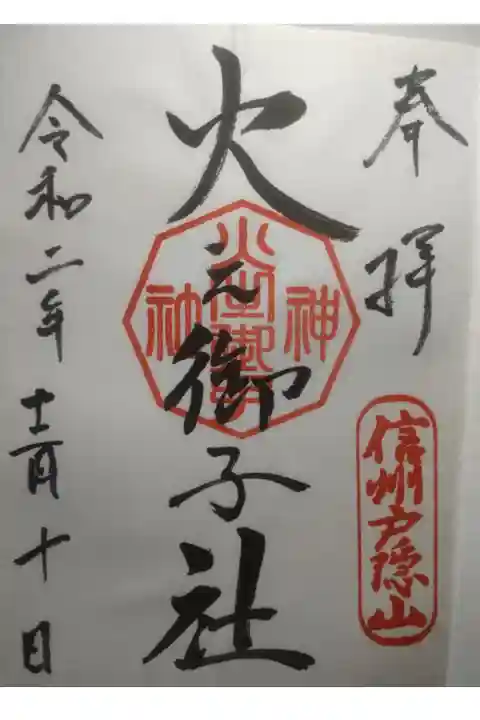 奉拝
信州戸隠山
火之御子社
神社
令和二年十二月十日